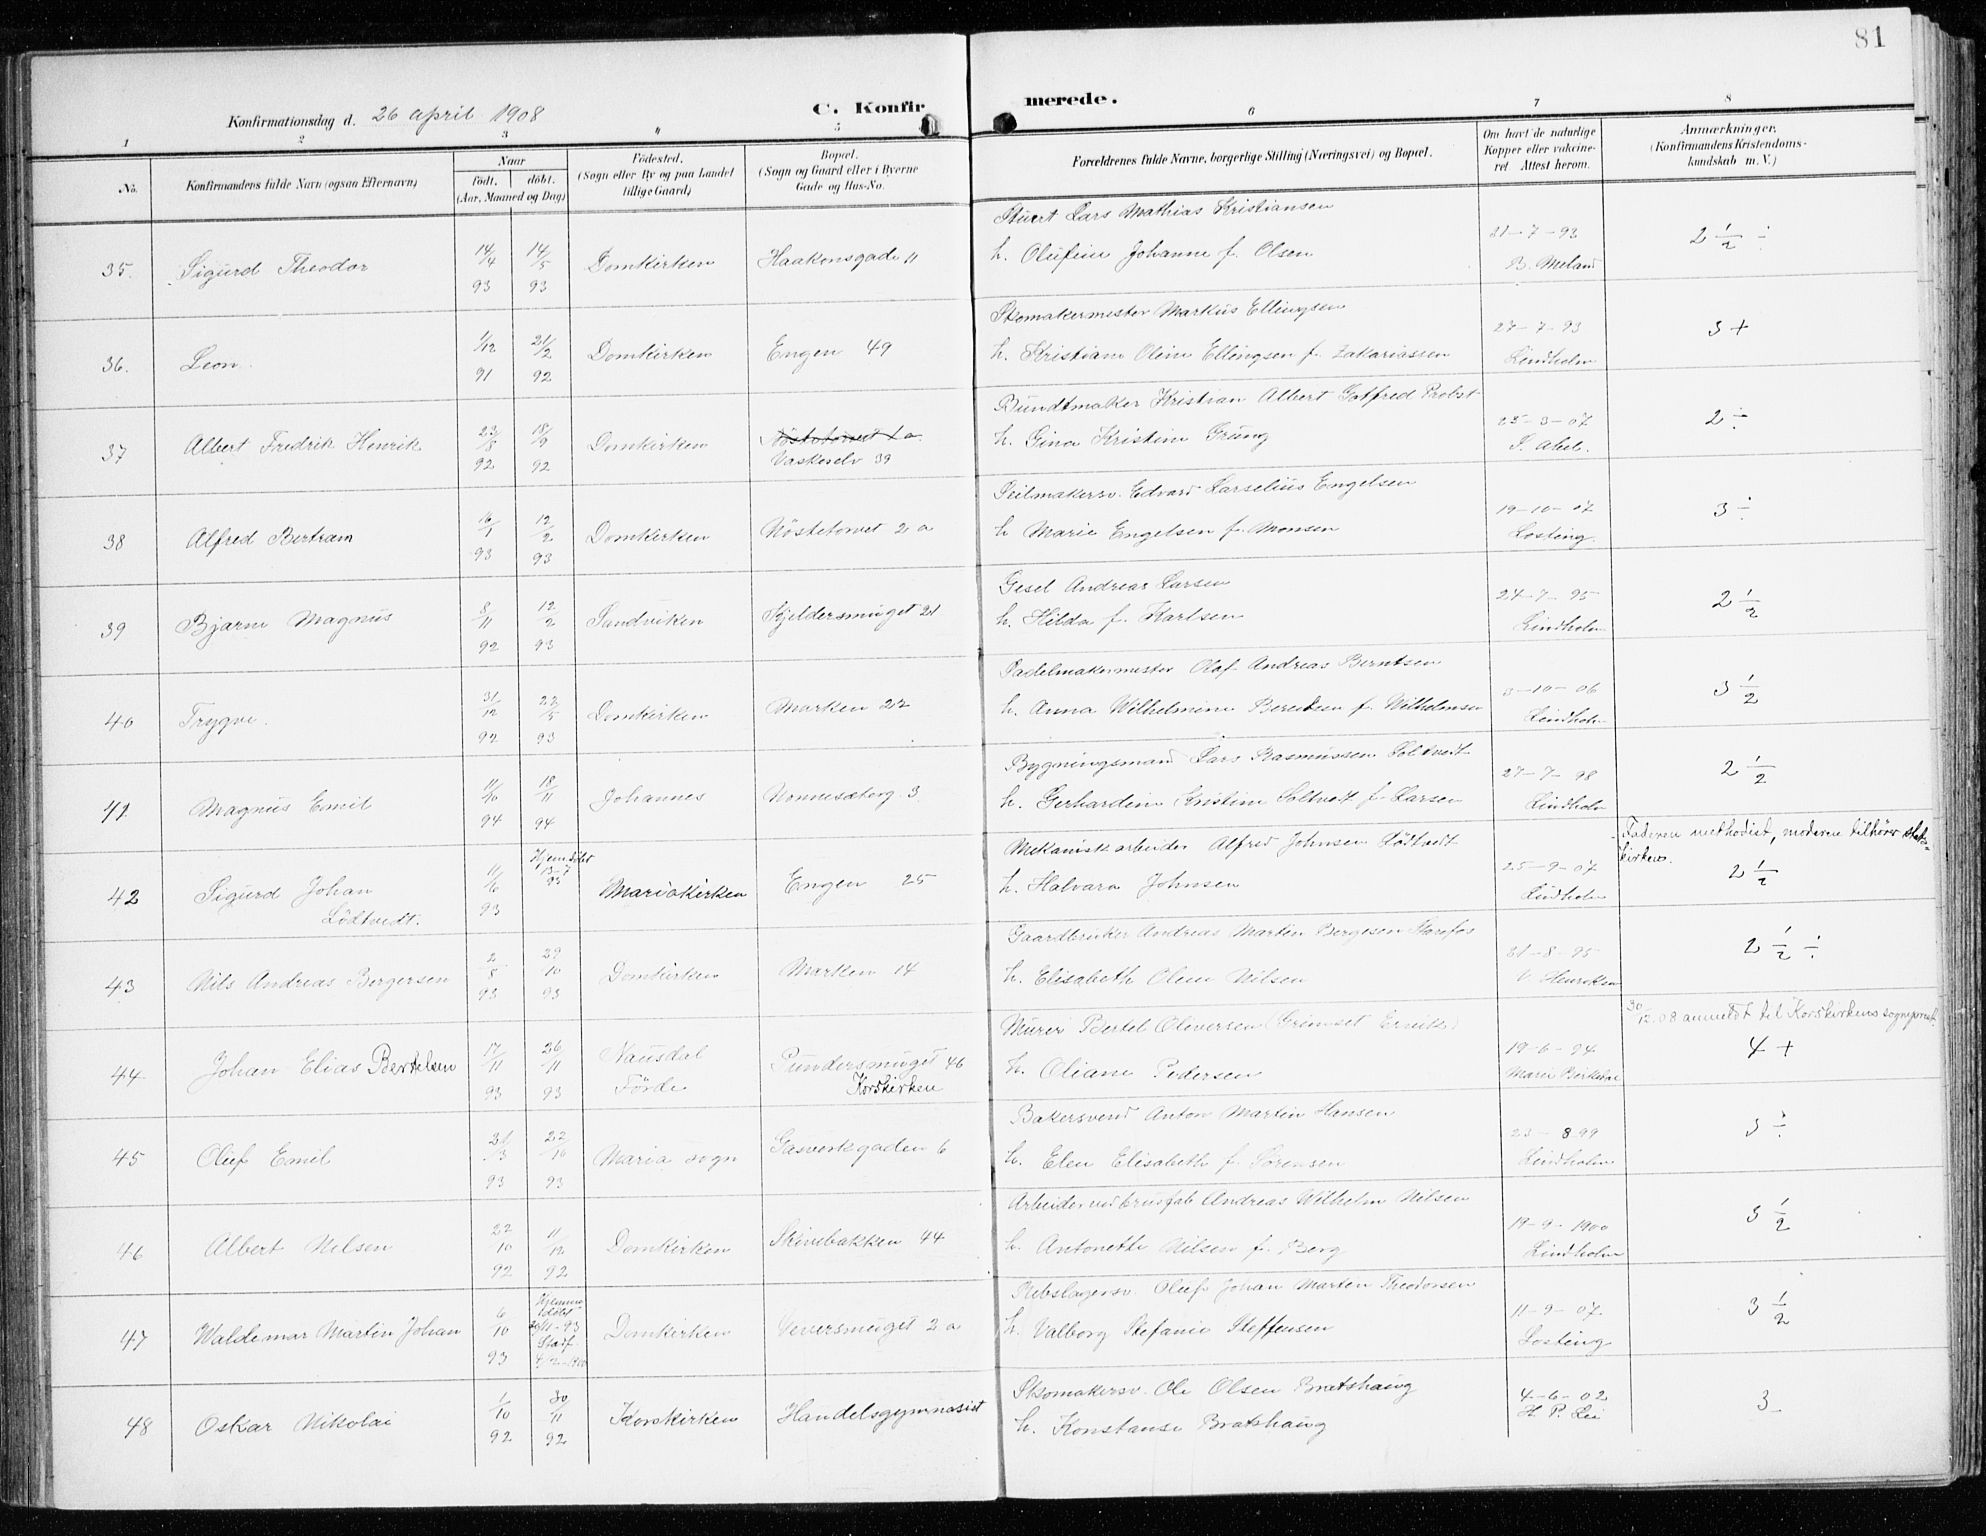 81
Konfirmationsdag d. 26 april 1908
C. Konfir
merede.
1 2 3 4 5 6 7 8
No.
Konfirmandens fulde Navn (ogsaa Efternavn)
Naar
født. døbt.
(Aar, Maaned og Dag)
Fødested.
(Sogn eller By og paa Landet
tillige Gaard)
Bopæl.
(Sogn og Gaard eller i Byerne
Gade og Hus-No.
Forældrenes fulde Navne, borgerlige Stilling (Næringsvei) og Bopæl.
Om havt de naturlige
Kopper eller vakcine-
ret Attest herom.
Anmærkninger.
(Konfirmandens Kristendoms-
kundskab m. V.)
35. Sigurd Theodor 14/4 93 14/5 93 Domkirken Haakonsgade 11
Stuert Lars Mathias Kristiansen
h. Olufine Johanne f. Olsen
31-7-93
B. Meland
2 1/2 ÷
36. Leon. 1/12 91 21/2 92 Domkirken Engen 49
Skomakermester Markus Ellingsen
h. Kristiane Oline Ellingsen f. Zakariassen
27-7-93
Lindholm
3 +
37 Albert Fredrik Henrik 23/5 92 18/9 92 Domkirken Nøstetorvet 2 a.
Vaskeselv 39
Bundtmaker Kristian Albert Gotfred Probst
h. Gina Kristine Grung
25-3-07
2 ÷
38 Alfred Bertram 16/1 93 12/2 93 Domkirken Nøstetorvet 2 a
Seilmakersv. Edvard Larselius Engelsen
h Marie Engelsen f. Monsen
19-10-07
Losting.
3 ÷
39 Bjarne Magnus 8/11 92 12/2 93 Sandviken Kjeldersmuget 21
Gesel Andreas Larsen
h. Hilda f. Karlsen
24-7-95
Lindholm
2 1/2
40 Trygve. 31/12 92 22/5 93 Domkirken Marken 22
Sadelmakermester Olaf Andreas Berntsen
h. Anna Wilhelmine Berntsen f. Wilhelmsen
3-10-06
Lindholm
3 1/2
41 Magnus Emil 11/10 94 18/11 94 Johannes Nonneseterg. 3
Bygningsmand Lars Rasmussen Soltvedt
h. Gerhardine Kristine Soltvedt f. Larsen
27-7-98
Lindholm
2 1/2
42 Sigurd Johan
Lødtvedt.
11/10 93 Hjemdøbt 13-7 95 Mariakirken Engen 25
Mekaniskarbeider Alfred Johnsen Lødtvedt
h. Halvara Johnsen
25-9-07
Lindholm
Faderen methodist, moderen tilhører stats-
kirken.
2 1/2
43 Nils Andreas Bergersen 2/8 93 29/10 93 Domkirken Marken 14
Gaardbruker Andreas Martin Bergesen Storefos
h. Elisabeth Oline Nilsen
31-8-95
V Henriksen
2 1/2 ÷
44. Johan Elias Bertelsen 17/11 93 26/11 93 Nausdal
Førde Pundersmuget 46
Korskirken
Murer Bertel Oliversen (Grimset Ervik)
h. Oliane Pedersen
19-6-94
Marie Birkeland
30/12.08 anmeldt til Korskirkens sogneprest.
4 +
45 Oluf Emil 31/3 93 22/10 93 Maria sogn Gasverkgaden 6
Bakersvend Anton Martin Hansen
h. Elen Elisabeth f. Sørensen
23-8 99
Lindholm
3 ÷
46 Albert Nilsen 22/10 92 11/12 92 Domkirken Skivebakken 44
Arbeider ved brusfab Andreas Wilhelm Nilsen
h. Antonette Nilsen f. Berg
19-9-1900
Lindholm
3 1/2
47 Waldemar Martin Johan 6/10 93 Hjemme
døbt
Stadf. Domkirken Veversmuget 2 a
Rebslagersv. Oluf Johan Marten Theodorsen
h. Valborg Stefanie Steffensen
11-9-07
Losting
3 1/2
48 Oskar Nikolai 1/10 92 30/11 92 Korskirken Handelsgymnasiet
Skomakersv. Ole Olsen Bratshaug
h. Konstanse Bratshaug
4-6-02
H. P. Lei
3